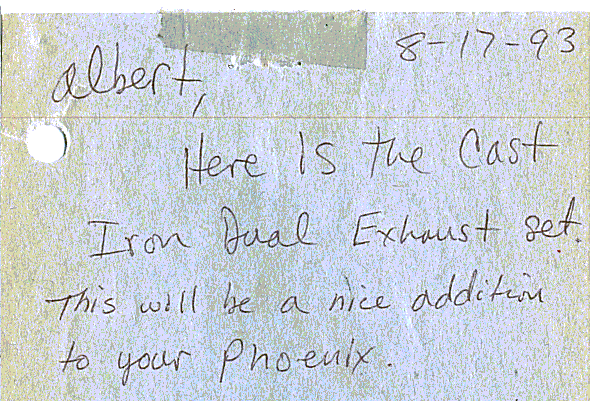 8-17-93
Albert,
Here Is the Cast
Iron Dual Exhaust set.
This will be a nice addition
to your Phoenix.